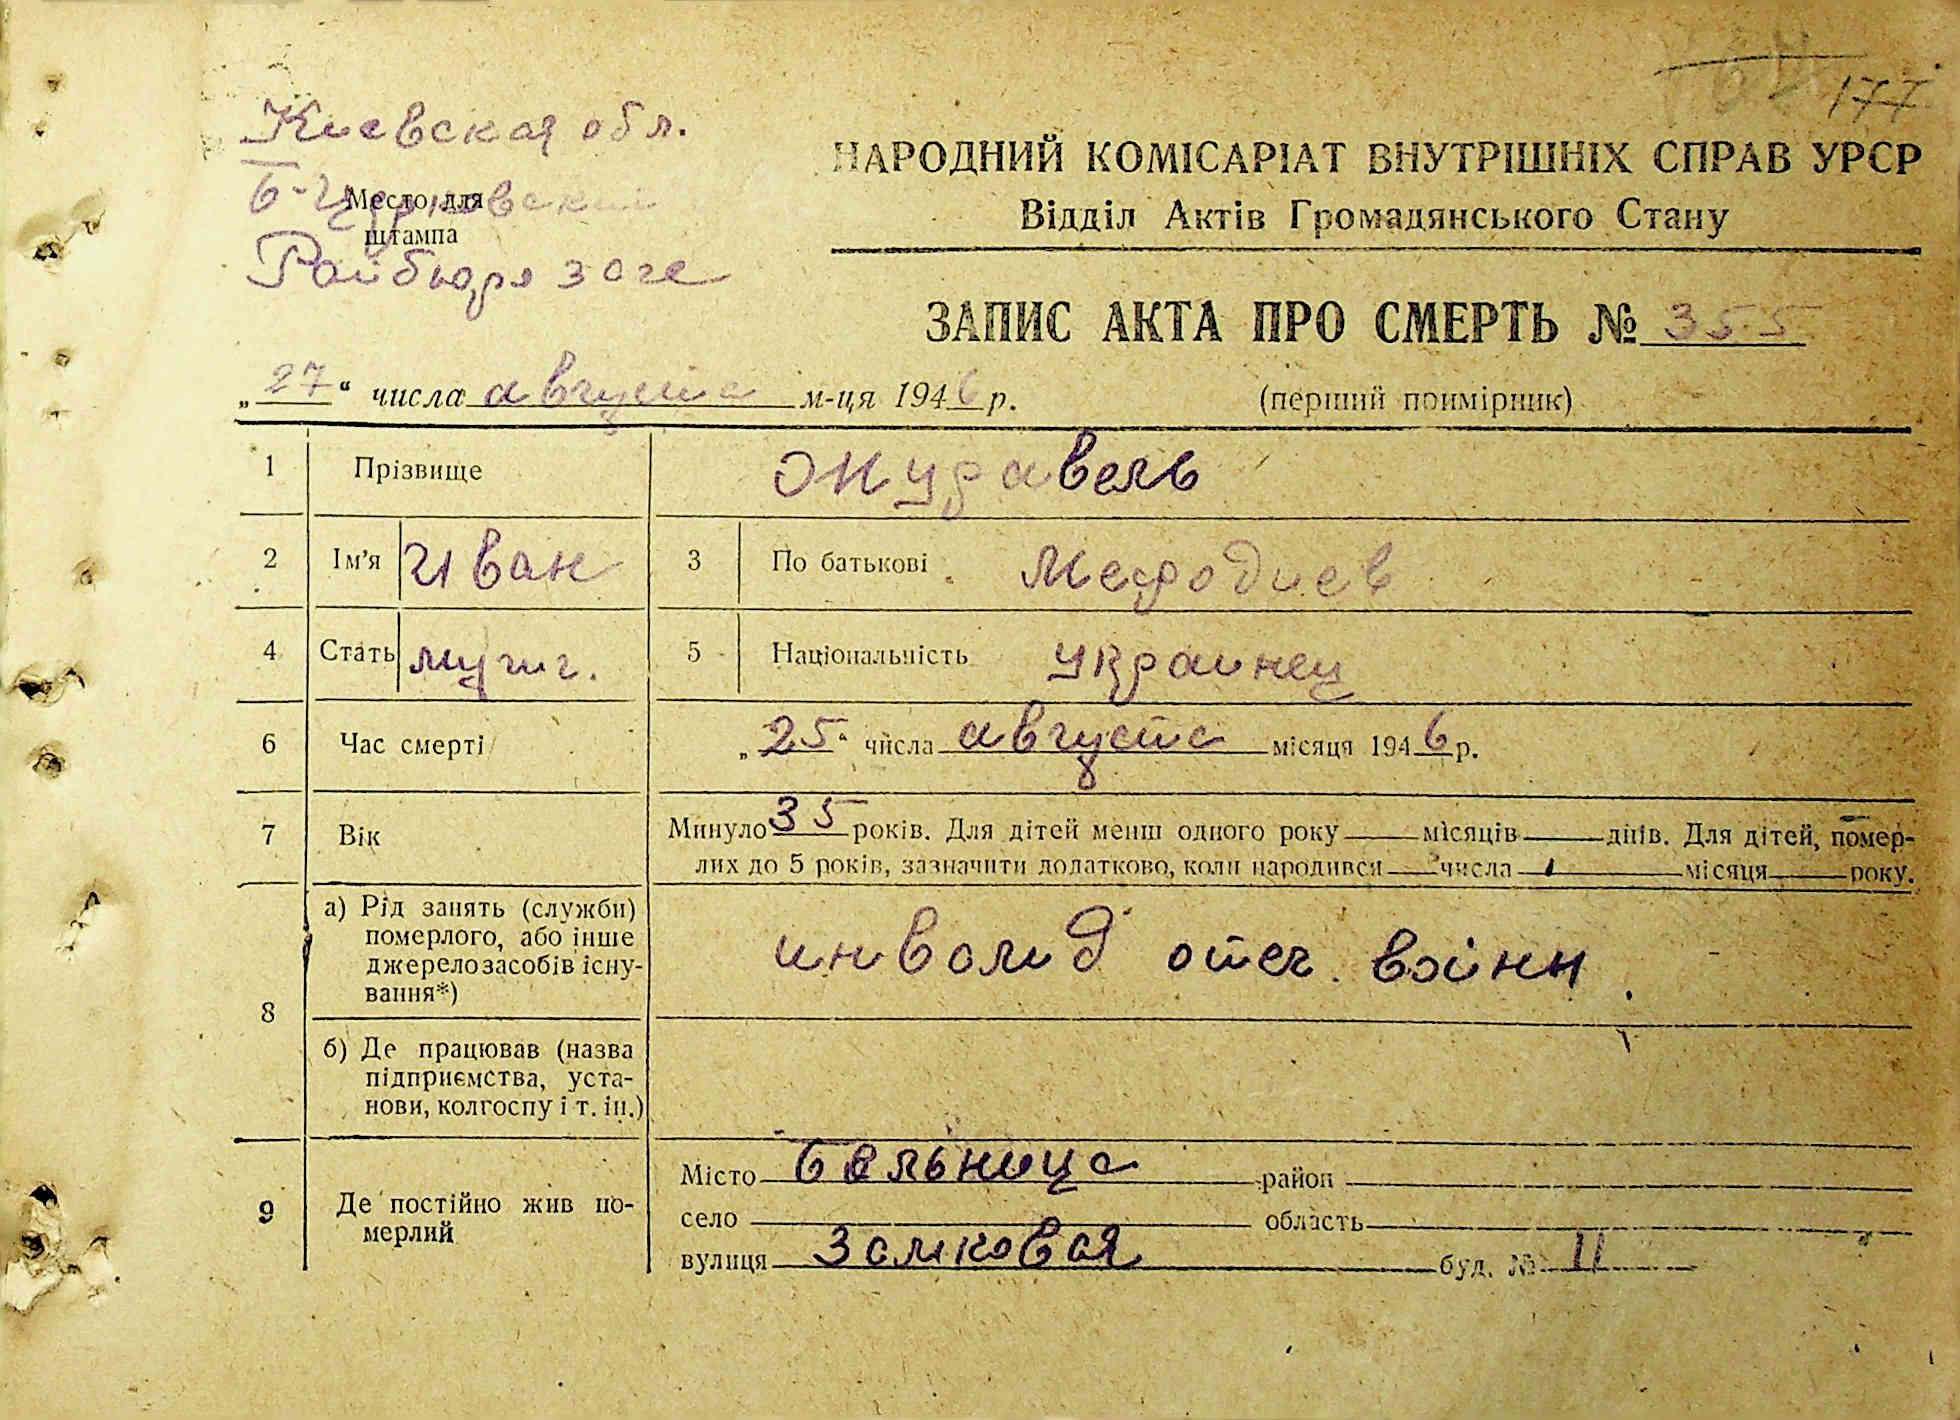 177
Киевская обл.
Б-Церковский
Место для
штампа
Райбюро загс
НАРОДНИЙ КОМІСАРІАТ ВНУТРІШНІХ СПРАВ УРСР
Відділ Актів Громадянського Стану
ЗАПИС АКТА ПРО СМЕРТЬ № 355
„27“ числа августа м-ця 1946 р. (перший примірник)
1 Прізвище Журавель
2 Ім'я Иван 3 По батькові Мефодиев
4 Стать мужч. 5 Національність украинец
6 Час смерті „25“ числа августа місяця 1946 р.
7 Вік Минуло 35 років. Для дітей менш одного року — місяців — днів. Для дітей, помер-
лих до 5 років, зазначити додатково, коли народився — числа — місяця — року.
8 а) Рід занять (служби)
померлого, або інше
джерело засобів існу-
вання*)
инвалид отеч. войны
б) Де працював (назва
підприємства, уста-
нови, колгоспу і т. ін.)
9 Де постійно жив по-
мерлий
Місто район
село область
вулиця Замковая буд. № 11